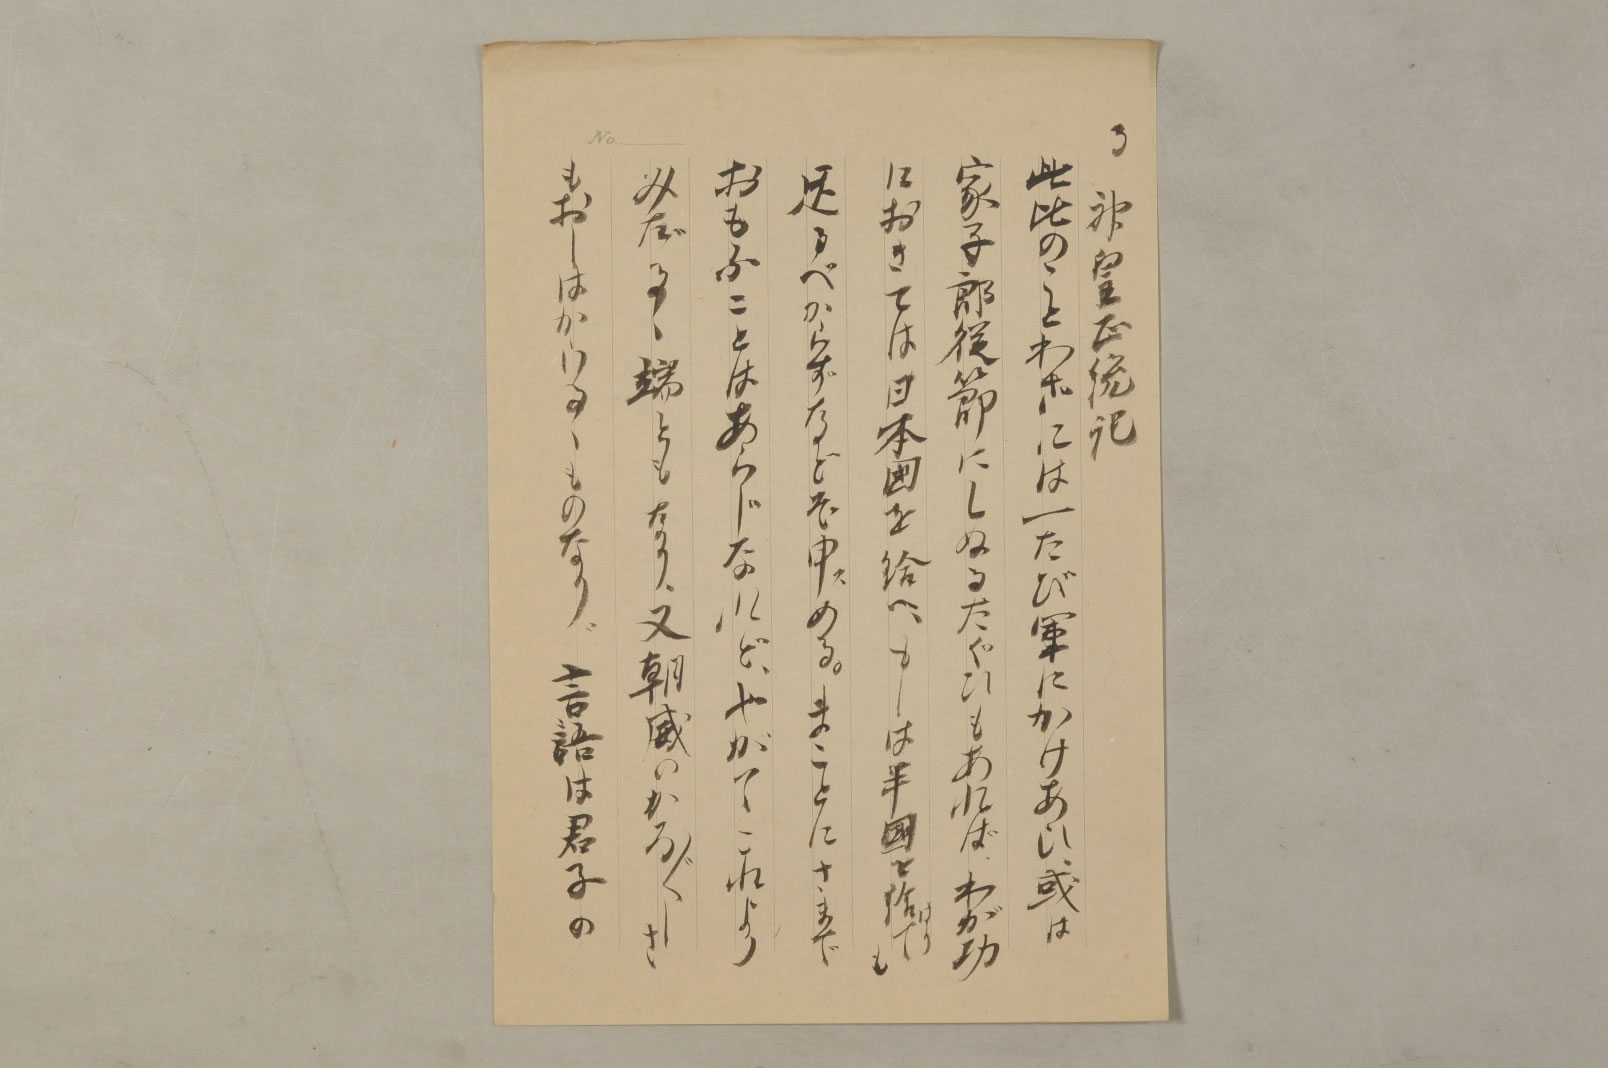 る
神皇正統記
此比のことわざには一たび軍にかけあひ、或は
家子郎従節にしぬるたぐひもあれば、わが功
におきては日本国を給へ、もしは半國を給はりても
足るべからずなどぞ申スめる。まことにさまで
おもふことはあらじなれど、やがてこれより
みだるゝ端ともなり、又朝威いかろ〴〵しさ
もおしはからるゝものなり、言語は君子の
No.